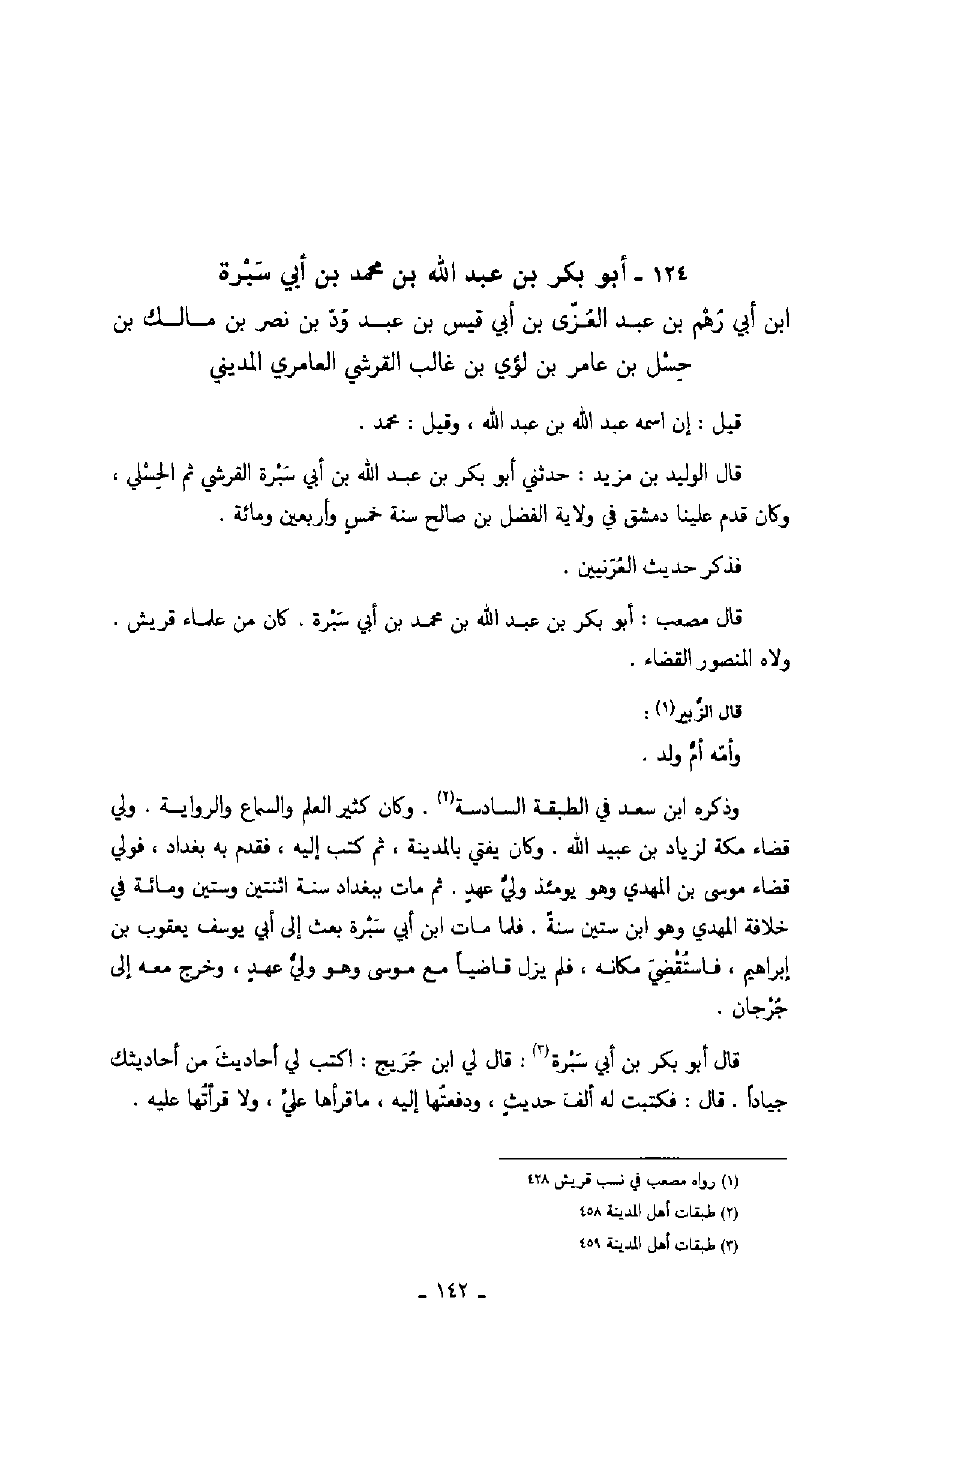 ١٢٤ ـ أبو بكر بن عبد الله بن محمد بن أبي سَبْرة
ابن أبي رُهْم بن عبـد العُـزّى بن أبي قيس بن عبـــد وُدّ بن نصر بن مــالــك بن
حِسْل بن عامر بن لؤي بن غالب القرشي العامري المديني
قيل : إن اسمه عبد الله بن عبد الله ، وقيل : محمد .
قال الوليد بن مزيد : حدثني أبو بكر بن عبـد الله بن أبي سَبْرة القرشي ثم الحِسْلي ،
وكان قدم علينا دمشق في ولاية الفضل بن صالح سنة خمسٍ وأربعين ومائة .
فذكر حديث العُرَنيين .
قال مصعب : أبو بكر بن عبـد الله بن محمـد بن أبي سَبْرة . كان من علمـاء قريش .
ولاه المنصور القضاء .
قال الزُّبير(١) :
وأمّه أمُّ ولد .
وذكره ابن سعـد في الطبقـة السـادسـة(٢) . وكان كثير العلم والسماع والروايـة . ولي
قضاء مكة لزياد بن عبيد الله . وكان يفتي بالمدينة ، ثم كتب إليه ، فقدم به بغداد ، فولي
قضاء موسى بن المهدي وهو يومئذ وليُّ عهدٍ . ثم مات ببغداد سنـة اثنتين وستين ومـائـة في
خلافة المهدي وهو ابن ستين سنةً . فلما مـات ابن أبي سَبْرة بعث إلى أبي يوسف يعقوب بن
إبراهيم ، فـاستُقْضِيَ مكانـه ، فلم يزل قـاضيـاً مـع مـوسى وهـو وليُّ عهـدٍ ، وخرج معـه إلى
جُرْجان .
قال أبو بكر بن أبي سَبْرة(٣) : قال لي ابن جُرَيج : اكتب لي أحاديثَ من أحاديثك
جياداً . قال : فكتبت له ألفَ حديثٍ ، ودفعتُها إليه ، ماقرأها عليَّ ، ولا قرأتُها عليه .
(١) رواه مصعب في نسب قريش ٤٢٨
(٢) طبقات أهل المدينة ٤٥٨
(٣) طبقات أهل المدينة ٤٥٩
ـ ١٤٢ ـ